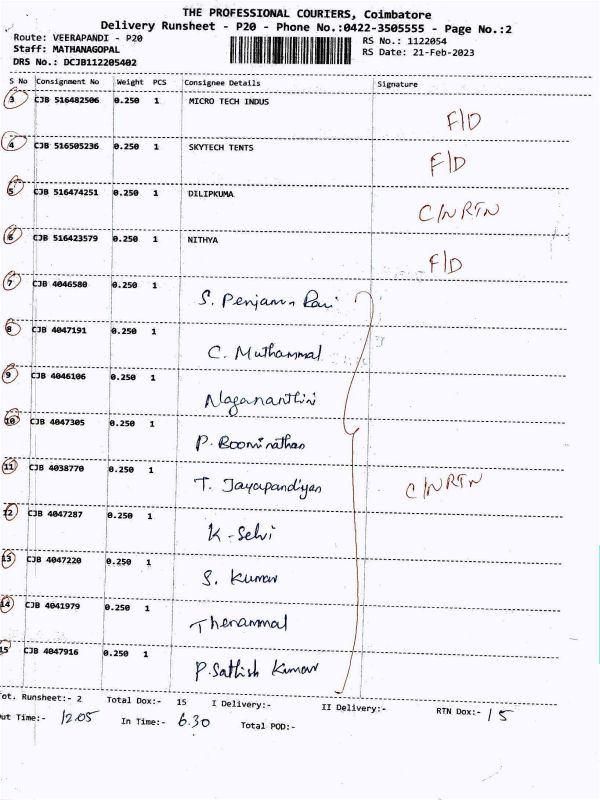 THE PROFESSIONAL COURIERS, Coimbatore
Delivery Runsheet - P20 - Phone No.:0422-3505555 - Page No.:2
Route: VEERAPANDI - P20
RS No.: 1122054
Staff: MATHANAGOPAL
RS Date: 21-Feb-2023
DRS No.: DCJB112205402
S No Consignment No Weight PCS Consignee Details Signature
3 CJB 516482506 0.250 1 MICRO TECH INDUS
F/D
4 CJB 516505236 0.250 1 SKYTECH TENTS
F/D
5 CJB 516474251 0.250 1 DILIPKUMA
C/N RTN
6 CJB 516423579 0.250 1 NITHYA
F/D
7 CJB 4046580 0.250 1
S.
8 CJB 4047191 0.250 1
C. Muthammal
9 CJB 4046106 0.250 1
Nagananthini
10 CJB 4047305 0.250 1
P. Boominathan
11 CJB 4038770 0.250 1
T. Jayapandiyan C/N RTN
12 CJB 4047287 0.250 1
K - Selvi
13 CJB 4047220 0.250 1
S. Kumar
14 CJB 4041979 0.250 1
Thenammal
15 CJB 4047916 0.250 1
P. Sathish Kumar
ot. Runsheet:- 2 Total Dox:- 15 I Delivery:- II Delivery:- RTN Dox:- 15
ut Time:- 12.05 In Time:- 6.30 Total POD:-